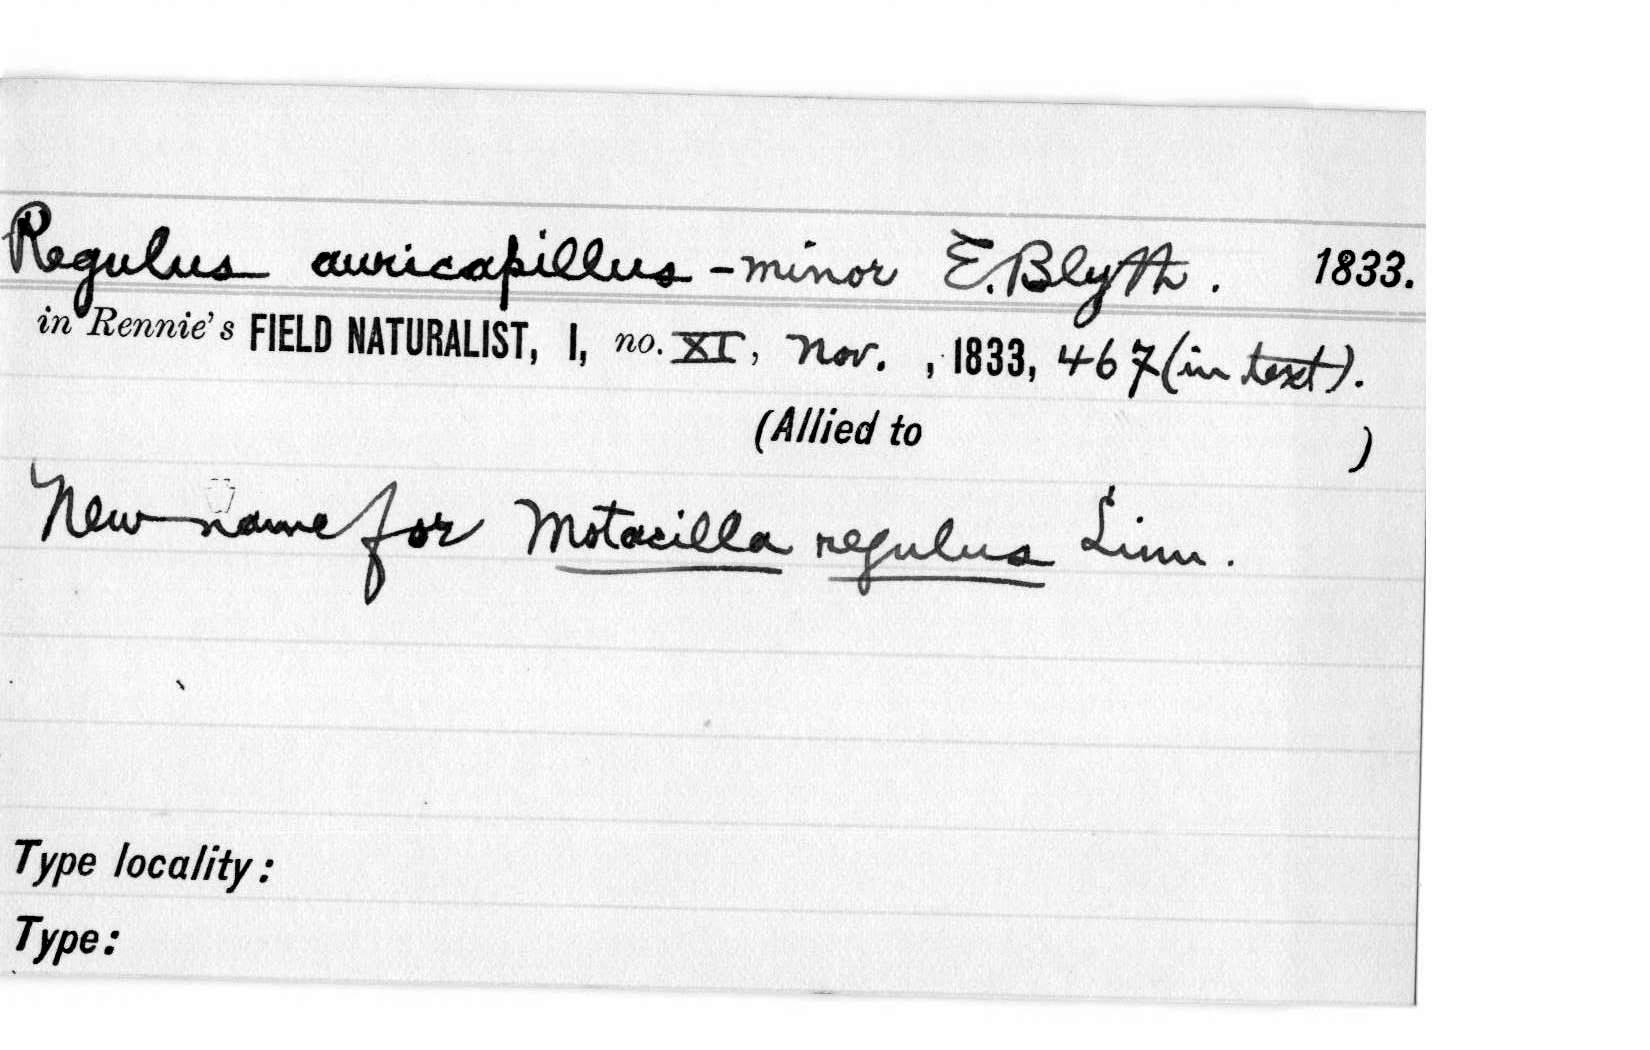 Regulus auricapillus - minor E. Blyth. 1833.
in Rennie's FIELD NATURALIST, I, no. XI, Nov. , 1833, 467 (in text).
(Allied to )
New name for Motacilla regulus Linn.
Type locality:
Type: